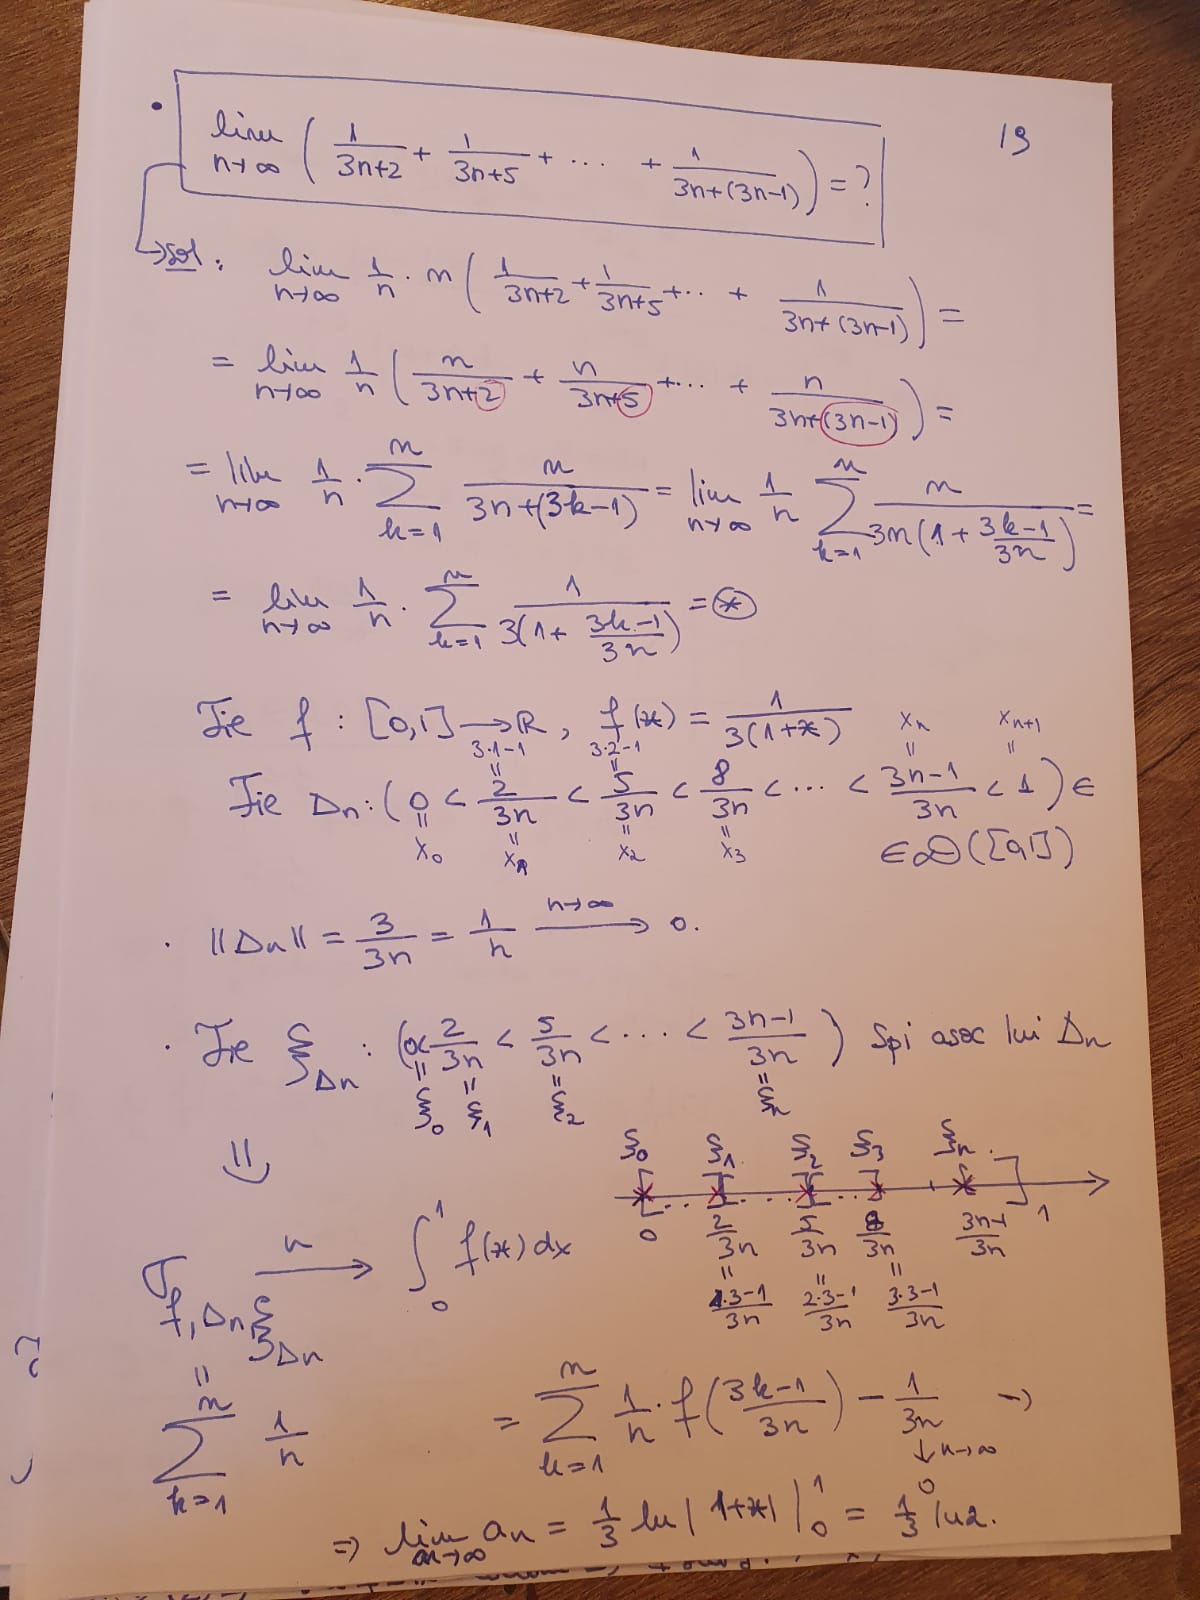 19
• lim n→∞ ( 1/(3n+2) + 1/(3n+5) + ... + 1/(3n+(3n-1)) ) = ?
→ sol : lim n→∞ 1/n · n ( 1/(3n+2) + 1/(3n+5) + ... + 1/(3n+(3n-1)) ) =
= lim n→∞ 1/n ( n/(3n+2) + n/(3n+5) + ... + n/(3n+(3n-1)) ) =
= lim n→∞ 1/n · ∑_{k=1}^{n} n/(3n+(3k-1)) = lim n→∞ 1/n ∑_{k=1}^{n} n/(3n(1+ (3k-1)/(3n))) =
= lim n→∞ 1/n · ∑_{k=1}^{n} 1/(3(1+ (3k-1)/(3n))) = ⊛
Fie f : [0,1] → R , f(x) = 1/(3(1+x))
3·1-1 3·2-1 xn xn+1
Fie Δn : ( 0 < 2/3n < 5/3n < 8/3n < ... < (3n-1)/3n < 1 ) ∈
x0 x1 x2 x3 ∈ D([0,1])
· ||Δn|| = 3/3n = 1/n → 0. n→∞
· Fie ξΔn : (0< 2/3n < 5/3n < ... < (3n-1)/3n ) Spi asoc lui Δn
ξ0 ξ1 ξ2 ξn
⇓
ξ0 ξ1 ξ2 ξ3 ξn
0 2/3n 5/3n 8/3n (3n-1)/3n 1
(1·3-1)/3n (2·3-1)/3n (3·3-1)/3n
σ f, Δn, ξΔn →n ∫_0^1 f(x) dx
= ∑_{k=1}^{n} 1/n = ∑_{k=1}^{n} 1/n · f((3k-1)/3n) - 1/3n ⇒
↓ n→∞
0
⇒ lim n→∞ an = 1/3 ln |1+x| |_0^1 = 1/3 ln2.